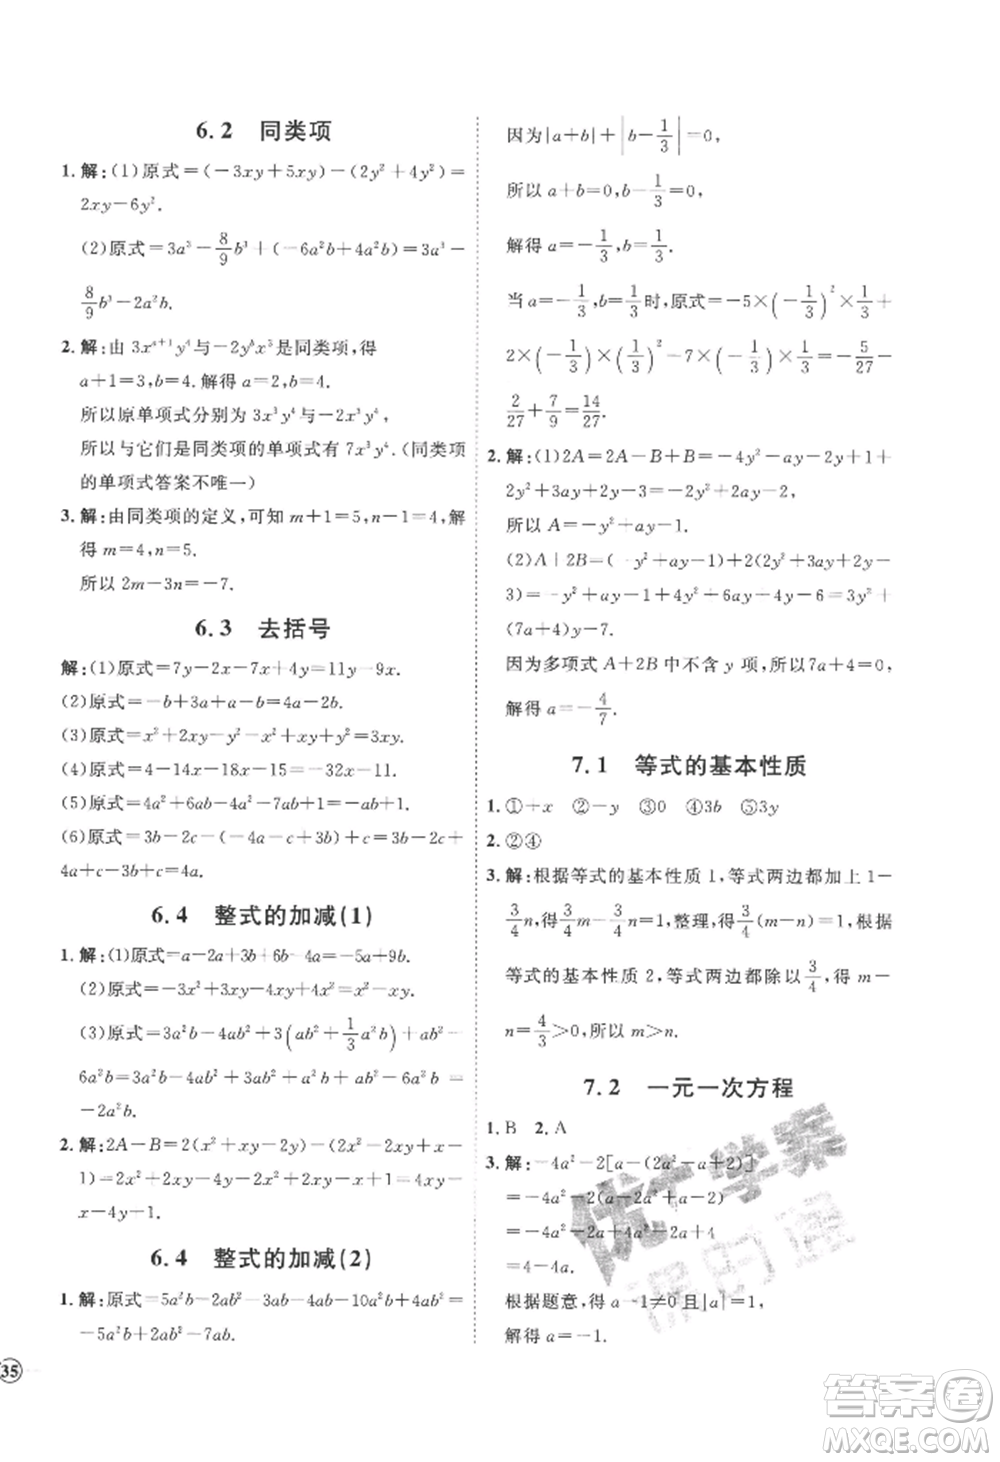 6.2 同类项
1. 解:(1)原式=(-3xy+5xy)-(2y²+4y²)=
2xy-6y².
(2)原式=3a³-8/9b³+(-6a²b+4a²b)=3a³-
8/9b³-2a²b.
2. 解:由 3xᵃ⁺¹y⁴与-2yᵇx³是同类项,得
a+1=3,b=4.解得 a=2,b=4.
所以原单项式分别为 3x³y⁴,-2x³y⁴,
所以与它们是同类项的单项式有 7x³y⁴.(同类项
的单项式答案不唯一)
3. 解:由同类项的定义,可知 m+1=5,n-1=4,解
得 m=4,n=5.
所以 2m-3n=-7.
6.3 去括号
解:(1)原式=7y-2x-7x+4y=11y-9x.
(2)原式=-b+3a+a-b=4a-2b.
(3)原式=x²+2xy-y²-x²+2xy+y²=4xy.
(4)原式=4-14x-18x+15=-32x+19.
(5)原式=4a²+6ab-4a²-7ab+1=-ab+1.
(6)原式=3b-2c-(-4a+c+3b)+c=3b-2c+
4a-c-3b+c+c=4a.
6.4 整式的加减(1)
1. 解:(1)原式=a-2a+3b+6b-4a=-5a+9b.
(2)原式=-3x²+2xy+3x²-3xy=-xy.
(3)原式=3a²b-[2ab²+3(ab²+1/3a²b)]+ab²-
6a²b=3a²b-2ab²-3ab²-a²b+ab²-6a²b=
-2ab²-4a²b.
2. 解:2A-B=2(x²+xy-2y)-(2x²-2xy+x-
1)=2x²+2xy-4y-2x²+2xy-x+1=4xy-x
-4y+1.
6.4 整式的加减(2)
1. 解:原式=5a²b-2ab²-3ab+4ab²-10a²b-4ab=
-5a²b+2ab²-7ab.
因为|a+b|+|b-1/3|=0,
所以 a+b=0,b-1/3=0,
解得 a=-1/3,b=1/3.
当 a=-1/3,b=1/3时,原式=-5×(-1/3)²×1/3+
2×(-1/3)×(1/3)²-7×(-1/3)×1/3=-5/27-
2/27+7/9=14/27.
2. 解:(1)2A=2A-B+B=-4y²-ay-2y+1+
2y²+3ay+2y-3=-2y²+2ay-2,
所以 A=-y²+ay-1.
(2)A+2B=(-y²+ay-1)+2(2y²+3ay+2y-
3)=-y²+ay-1+4y²+6ay+4y-6=3y²+
(7a+4)y-7.
因为多项式 A+2B 中不含 y 项,所以7a+4=0,
解得 a=-4/7.
7.1 等式的基本性质
1. ①+x ②-y ③0 ④3b ⑤3y
2. ②④
3. 解:根据等式的基本性质 1,等式两边都加上 1-
3/4n,得3/4m-3/4n=1,整理,得3/4(m-n)=1,根据
等式的基本性质 2,等式两边都除以3/4,得 m-
n=4/3>0,所以 m>n.
7.2 一元一次方程
1. B 2. A
3. 解:-4a²-2[a-(2a²-a+2)]
=-4a²-2(a-2a²+a-2)
=-4a²-2a+4a²-2a+4
=-4a+4.
根据题意,得 a-1≠0 且|a|=1,
解得 a=-1.
优+学案
课时通
35
答案圈
MXQE.COM